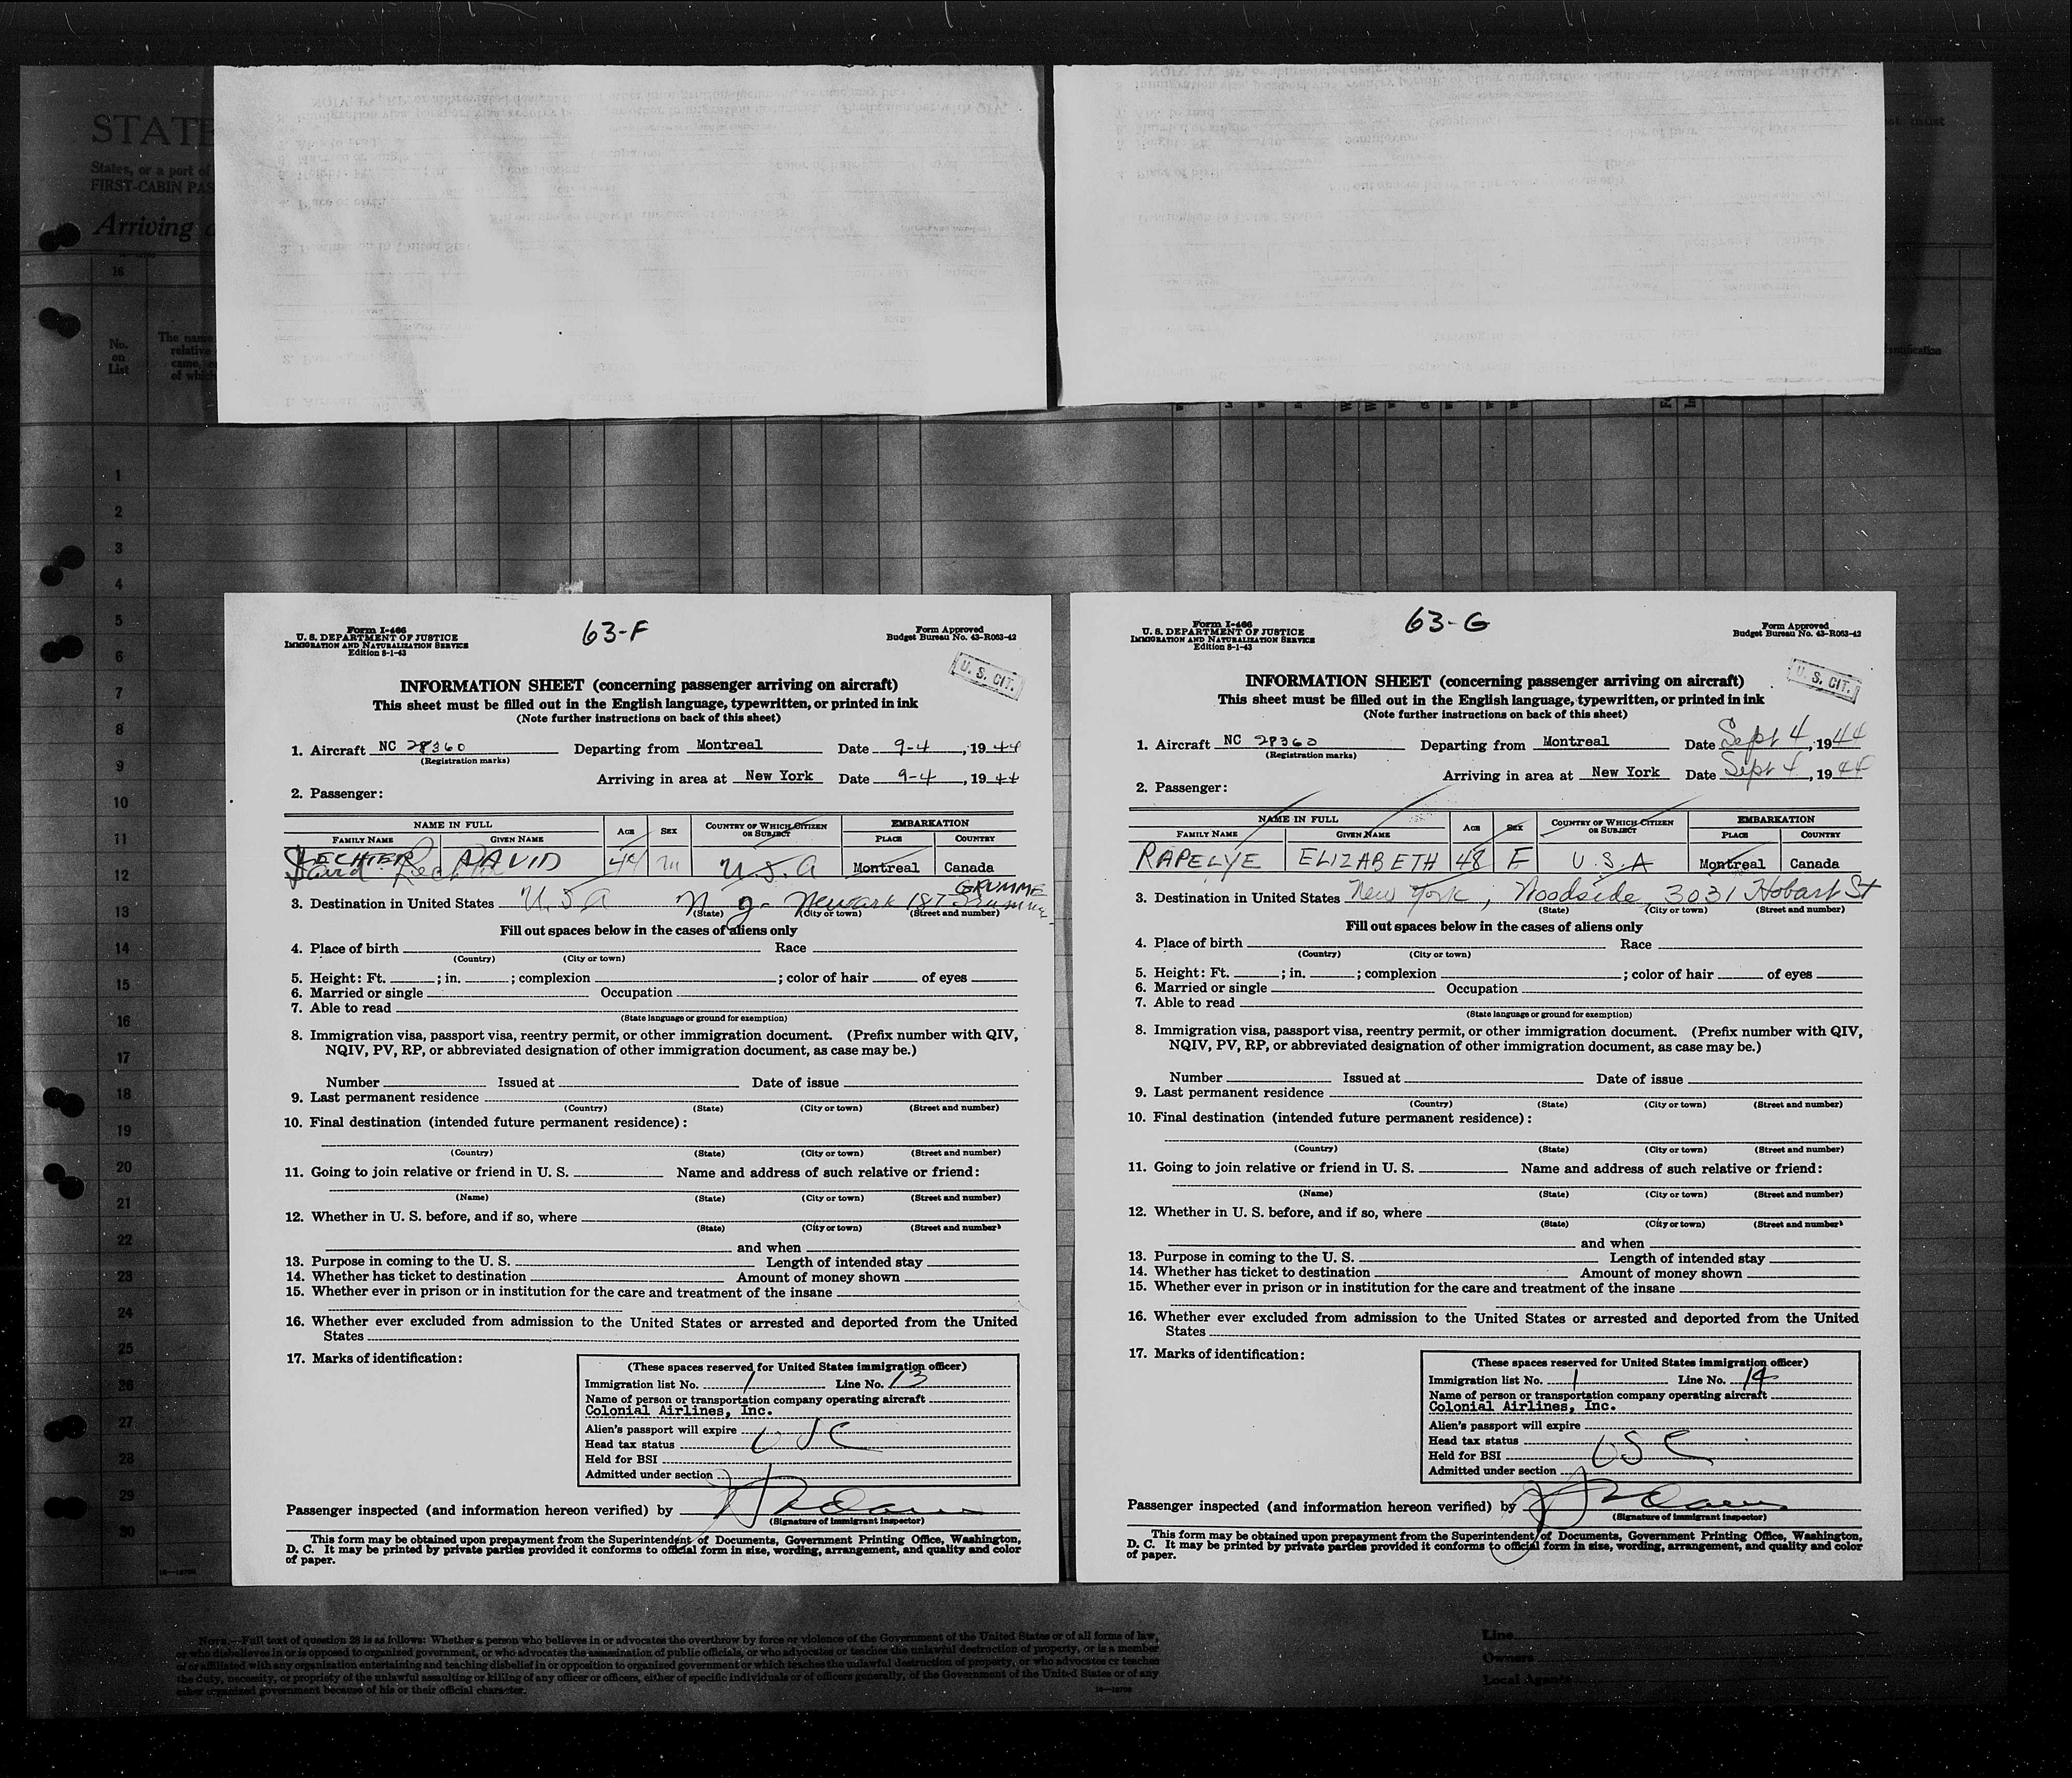 STATE
States, or a port of
FIRST-CABIN PAS
Arriving
16
No.
on
List
The name
relative
came,
of which
1
2
3
4
5
6
7
8
9
10
11
12
13
14
15
16
17
18
19
20
21
22
23
24
25
26
27
28
29
30
Form I-466
U. S. DEPARTMENT OF JUSTICE
IMMIGRATION AND NATURALIZATION SERVICE
Edition 8-1-43
63-F
Form Approved
Budget Bureau No. 43-R063-42
U. S. CIT.
INFORMATION SHEET (concerning passenger arriving on aircraft)
This sheet must be filled out in the English language, typewritten, or printed in ink
(Note further instructions on back of this sheet)
1. Aircraft NC 28360 Departing from Montreal Date 9-4, 1944
(Registration marks)
Arriving in area at New York Date 9-4, 1944
2. Passenger:
NAME IN FULL AGE SEX COUNTRY OF WHICH CITIZEN OR SUBJECT EMBARKATION
FAMILY NAME GIVEN NAME PLACE COUNTRY
LECHTER DAVID 44 m U.S.A Montreal Canada
GRUMME
3. Destination in United States U.S.A N.J. Newark 187
(State) (City or town) (Street and number)
Fill out spaces below in the cases of aliens only
4. Place of birth Race
(Country) (City or town)
5. Height: Ft. ; in. ; complexion ; color of hair of eyes
6. Married or single Occupation
7. Able to read
(State language or ground for exemption)
8. Immigration visa, passport visa, reentry permit, or other immigration document. (Prefix number with QIV,
NQIV, PV, RP, or abbreviated designation of other immigration document, as case may be.)
Number Issued at Date of issue
9. Last permanent residence
(Country) (State) (City or town) (Street and number)
10. Final destination (intended future permanent residence):
(Country) (State) (City or town) (Street and number)
11. Going to join relative or friend in U. S. Name and address of such relative or friend:
(Name) (State) (City or town) (Street and number)
12. Whether in U. S. before, and if so, where
(State) (City or town) (Street and number)
and when
13. Purpose in coming to the U. S. Length of intended stay
14. Whether has ticket to destination Amount of money shown
15. Whether ever in prison or in institution for the care and treatment of the insane
16. Whether ever excluded from admission to the United States or arrested and deported from the United
States
17. Marks of identification:
(These spaces reserved for United States immigration officer)
Immigration list No. 1 Line No. 13
Name of person or transportation company operating aircraft
Colonial Airlines, Inc.
Alien's passport will expire
Head tax status USC
Held for BSI
Admitted under section
Passenger inspected (and information hereon verified) by
(Signature of immigrant inspector)
This form may be obtained upon prepayment from the Superintendent of Documents, Government Printing Office, Washington,
D. C. It may be printed by private parties provided it conforms to official form in size, wording, arrangement, and quality and color
of paper.
Form I-466
U. S. DEPARTMENT OF JUSTICE
IMMIGRATION AND NATURALIZATION SERVICE
Edition 8-1-43
63-G
Form Approved
Budget Bureau No. 43-R063-42
U. S. CIT.
INFORMATION SHEET (concerning passenger arriving on aircraft)
This sheet must be filled out in the English language, typewritten, or printed in ink
(Note further instructions on back of this sheet)
1. Aircraft NC 28360 Departing from Montreal Date Sept 4, 1944
(Registration marks)
Arriving in area at New York Date Sept 4, 1944
2. Passenger:
NAME IN FULL AGE SEX COUNTRY OF WHICH CITIZEN OR SUBJECT EMBARKATION
FAMILY NAME GIVEN NAME PLACE COUNTRY
RAPELYE ELIZABETH 48 F U.S.A Montreal Canada
3. Destination in United States New York, Woodside, 3031 Hobart St
(State) (City or town) (Street and number)
Fill out spaces below in the cases of aliens only
4. Place of birth Race
(Country) (City or town)
5. Height: Ft. ; in. ; complexion ; color of hair of eyes
6. Married or single Occupation
7. Able to read
(State language or ground for exemption)
8. Immigration visa, passport visa, reentry permit, or other immigration document. (Prefix number with QIV,
NQIV, PV, RP, or abbreviated designation of other immigration document, as case may be.)
Number Issued at Date of issue
9. Last permanent residence
(Country) (State) (City or town) (Street and number)
10. Final destination (intended future permanent residence):
(Country) (State) (City or town) (Street and number)
11. Going to join relative or friend in U. S. Name and address of such relative or friend:
(Name) (State) (City or town) (Street and number)
12. Whether in U. S. before, and if so, where
(State) (City or town) (Street and number)
and when
13. Purpose in coming to the U. S. Length of intended stay
14. Whether has ticket to destination Amount of money shown
15. Whether ever in prison or in institution for the care and treatment of the insane
16. Whether ever excluded from admission to the United States or arrested and deported from the United
States
17. Marks of identification:
(These spaces reserved for United States immigration officer)
Immigration list No. 1 Line No. 14
Name of person or transportation company operating aircraft
Colonial Airlines, Inc.
Alien's passport will expire
Head tax status USC
Held for BSI
Admitted under section
Passenger inspected (and information hereon verified) by
(Signature of immigrant inspector)
This form may be obtained upon prepayment from the Superintendent of Documents, Government Printing Office, Washington,
D. C. It may be printed by private parties provided it conforms to official form in size, wording, arrangement, and quality and color
of paper.
NOTE.—Full text of question 28 is as follows: Whether a person who believes in or advocates the overthrow by force or violence of the Government of the United States or of all forms of law,
or who disbelieves in or is opposed to organized government, or who advocates the assassination of public officials, or who advocates or teaches the unlawful destruction of property, or is a member
of or affiliated with any organization entertaining and teaching disbelief in or opposition to organized government or which teaches the unlawful destruction of property, or who advocates or teaches
the duty, necessity, or propriety of the unlawful assaulting or killing of any officer or officers, either of specific individuals or of officers generally, of the Government of the United States or of any
other organized government because of his or their official character.
Line
Owners
Local Agents